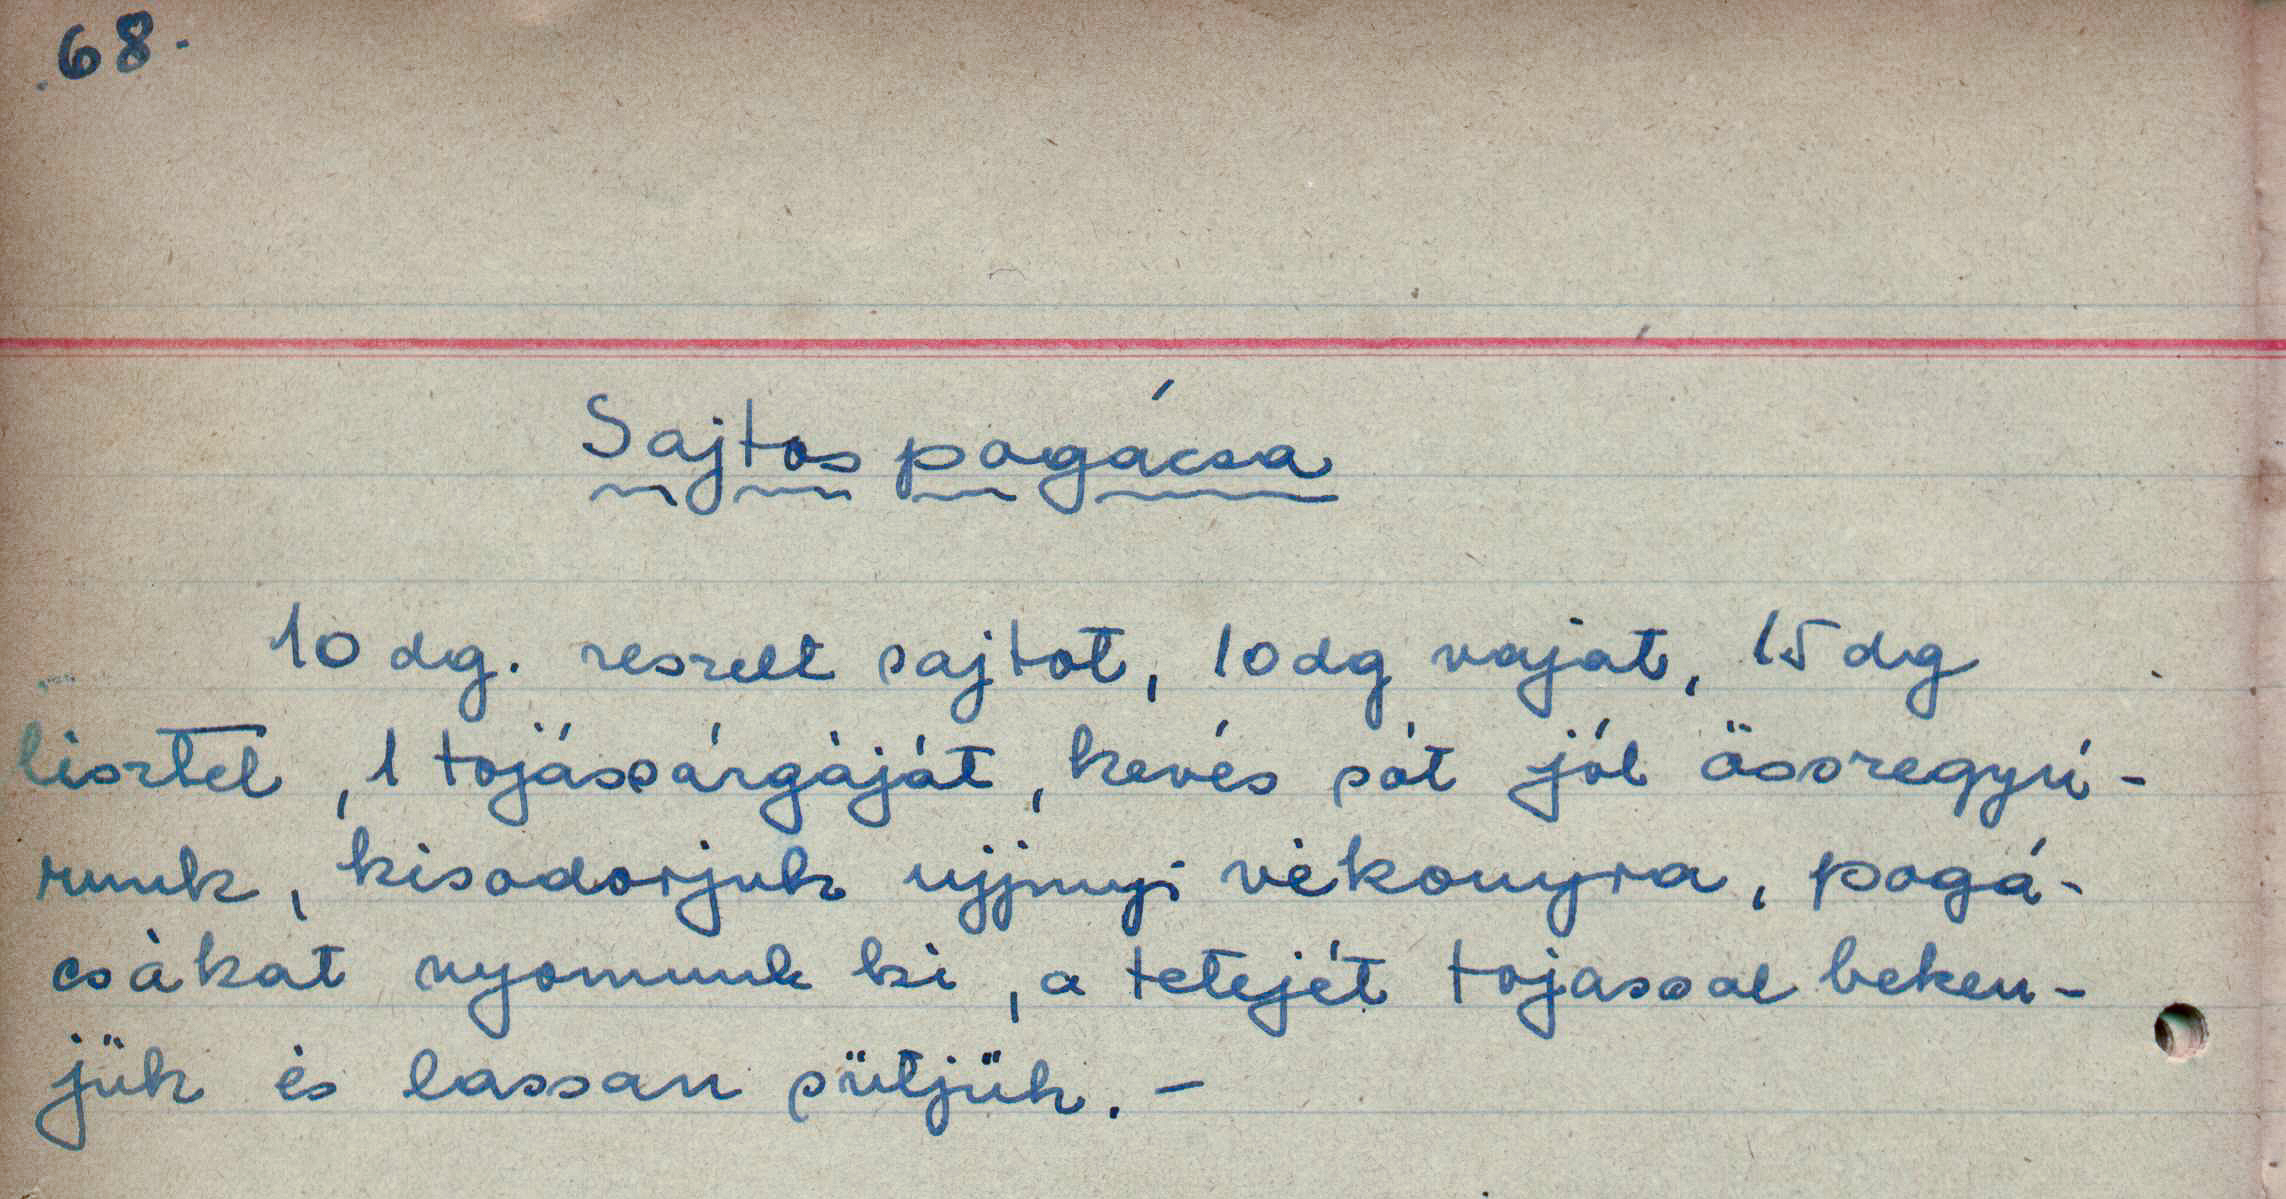 68.
Sajtos pogácsa
10 dg. reszelt sajtot, 10 dg vajat, 15 dg
liszttel, 1 tojássárgáját, kevés sót jól összegyú-
runk, kisodorjuk ujjnyi vékonyra, pogá-
csákat nyomunk ki, a tetejét tojassal beken-
jük és lassan sütjük. -